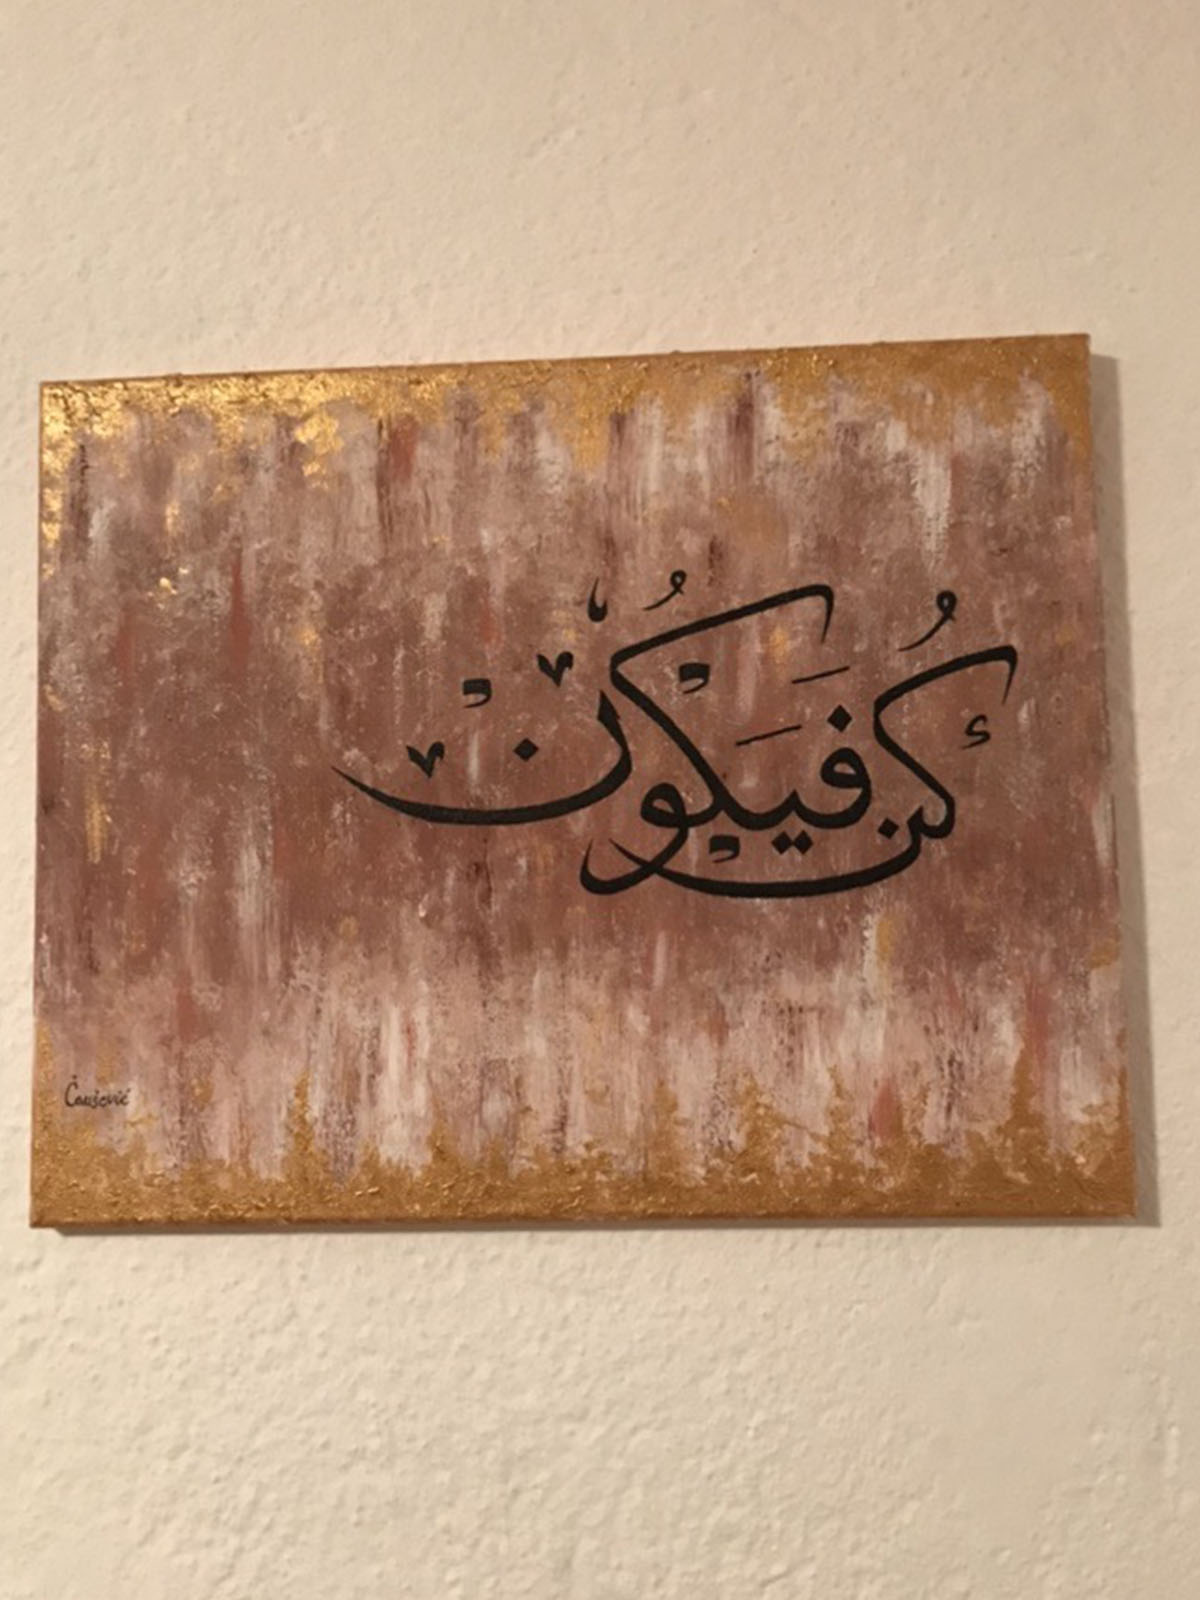 كُن فَيَكُونُ
Čaušević